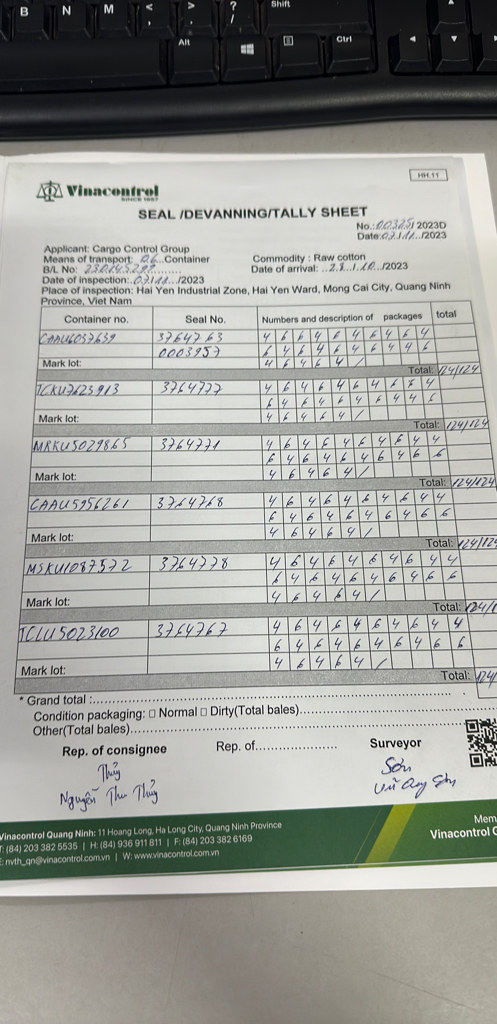 B N M < , > . ? / Shift
Alt Ctrl
HH.11
Vinacontrol
SINCE 1957
SEAL /DEVANNING/TALLY SHEET
No.: 00325/ 2023D
Date: 02.11../2023
Applicant: Cargo Control Group
Means of transport: 06..Container Commodity : Raw cotton
B/L No: Date of arrival: ..28.1.10../2023
Date of inspection: 02.11../2023
Place of inspection: Hai Yen Industrial Zone, Hai Yen Ward, Mong Cai City, Quang Ninh
Province, Viet Nam
Container no. Seal No. Numbers and description of packages total
CAAU6057659 3764763 4 6 6 4 6 4 6 4 6 4
0003957 6 4 6 4 6 4 6 4 4 6
Mark lot: 4 6 4 6 4 /
Total: 124/124
TCKU7623913 3764777 4 6 4 6 4 6 4 6 6 4
6 4 6 4 6 4 6 4 4 6
Mark lot: 4 6 4 6 4 /
Total: 124/124
MRKU5029865 3764771 4 6 4 6 4 6 4 6 4 4
6 4 6 4 6 4 6 4 6 6
Mark lot: 4 6 4 6 4 /
Total: 124/124
CAAU5956261 3764768 4 6 4 6 4 6 4 6 4 4
6 4 6 4 6 4 6 4 6 6
Mark lot: 4 6 4 6 4 /
Total: 124/124
MSKU1087572 3764778 4 6 4 6 4 6 4 6 4 4
6 4 6 4 6 4 6 4 6 6
Mark lot: 4 6 4 6 4 /
Total: 124/1
TCLU5023100 3764767 4 6 4 6 4 6 4 6 4 4
6 4 6 4 6 4 6 4 6 6
Mark lot: 4 6 4 6 4 /
Total: 124/
* Grand total :
Condition packaging: □ Normal □ Dirty(Total bales)
Other(Total bales)
Rep. of consignee Rep. of Surveyor
Thủy Sơn
Nguyễn Thu Thủy Vũ Quy Sơn
Vinacontrol Quang Ninh: 11 Hoang Long, Ha Long City, Quang Ninh Province
T: (84) 203 382 5535 | H: (84) 936 911 811 | F: (84) 203 382 6169
E: nvth_qn@vinacontrol.com.vn | W: www.vinacontrol.com.vn
Mem
Vinacontrol G